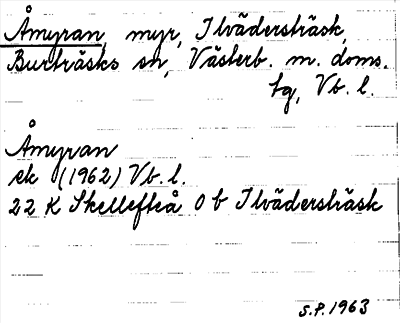 Åmyran, myr, Ilvädersträsk,
Burträsks sn, Västerb. m. doms.
tg, Vb. l.
Åmyran
ek (1962) Vb. l.
22 K Skellefteå 0 b Ilvädersträsk
S.P. 1963